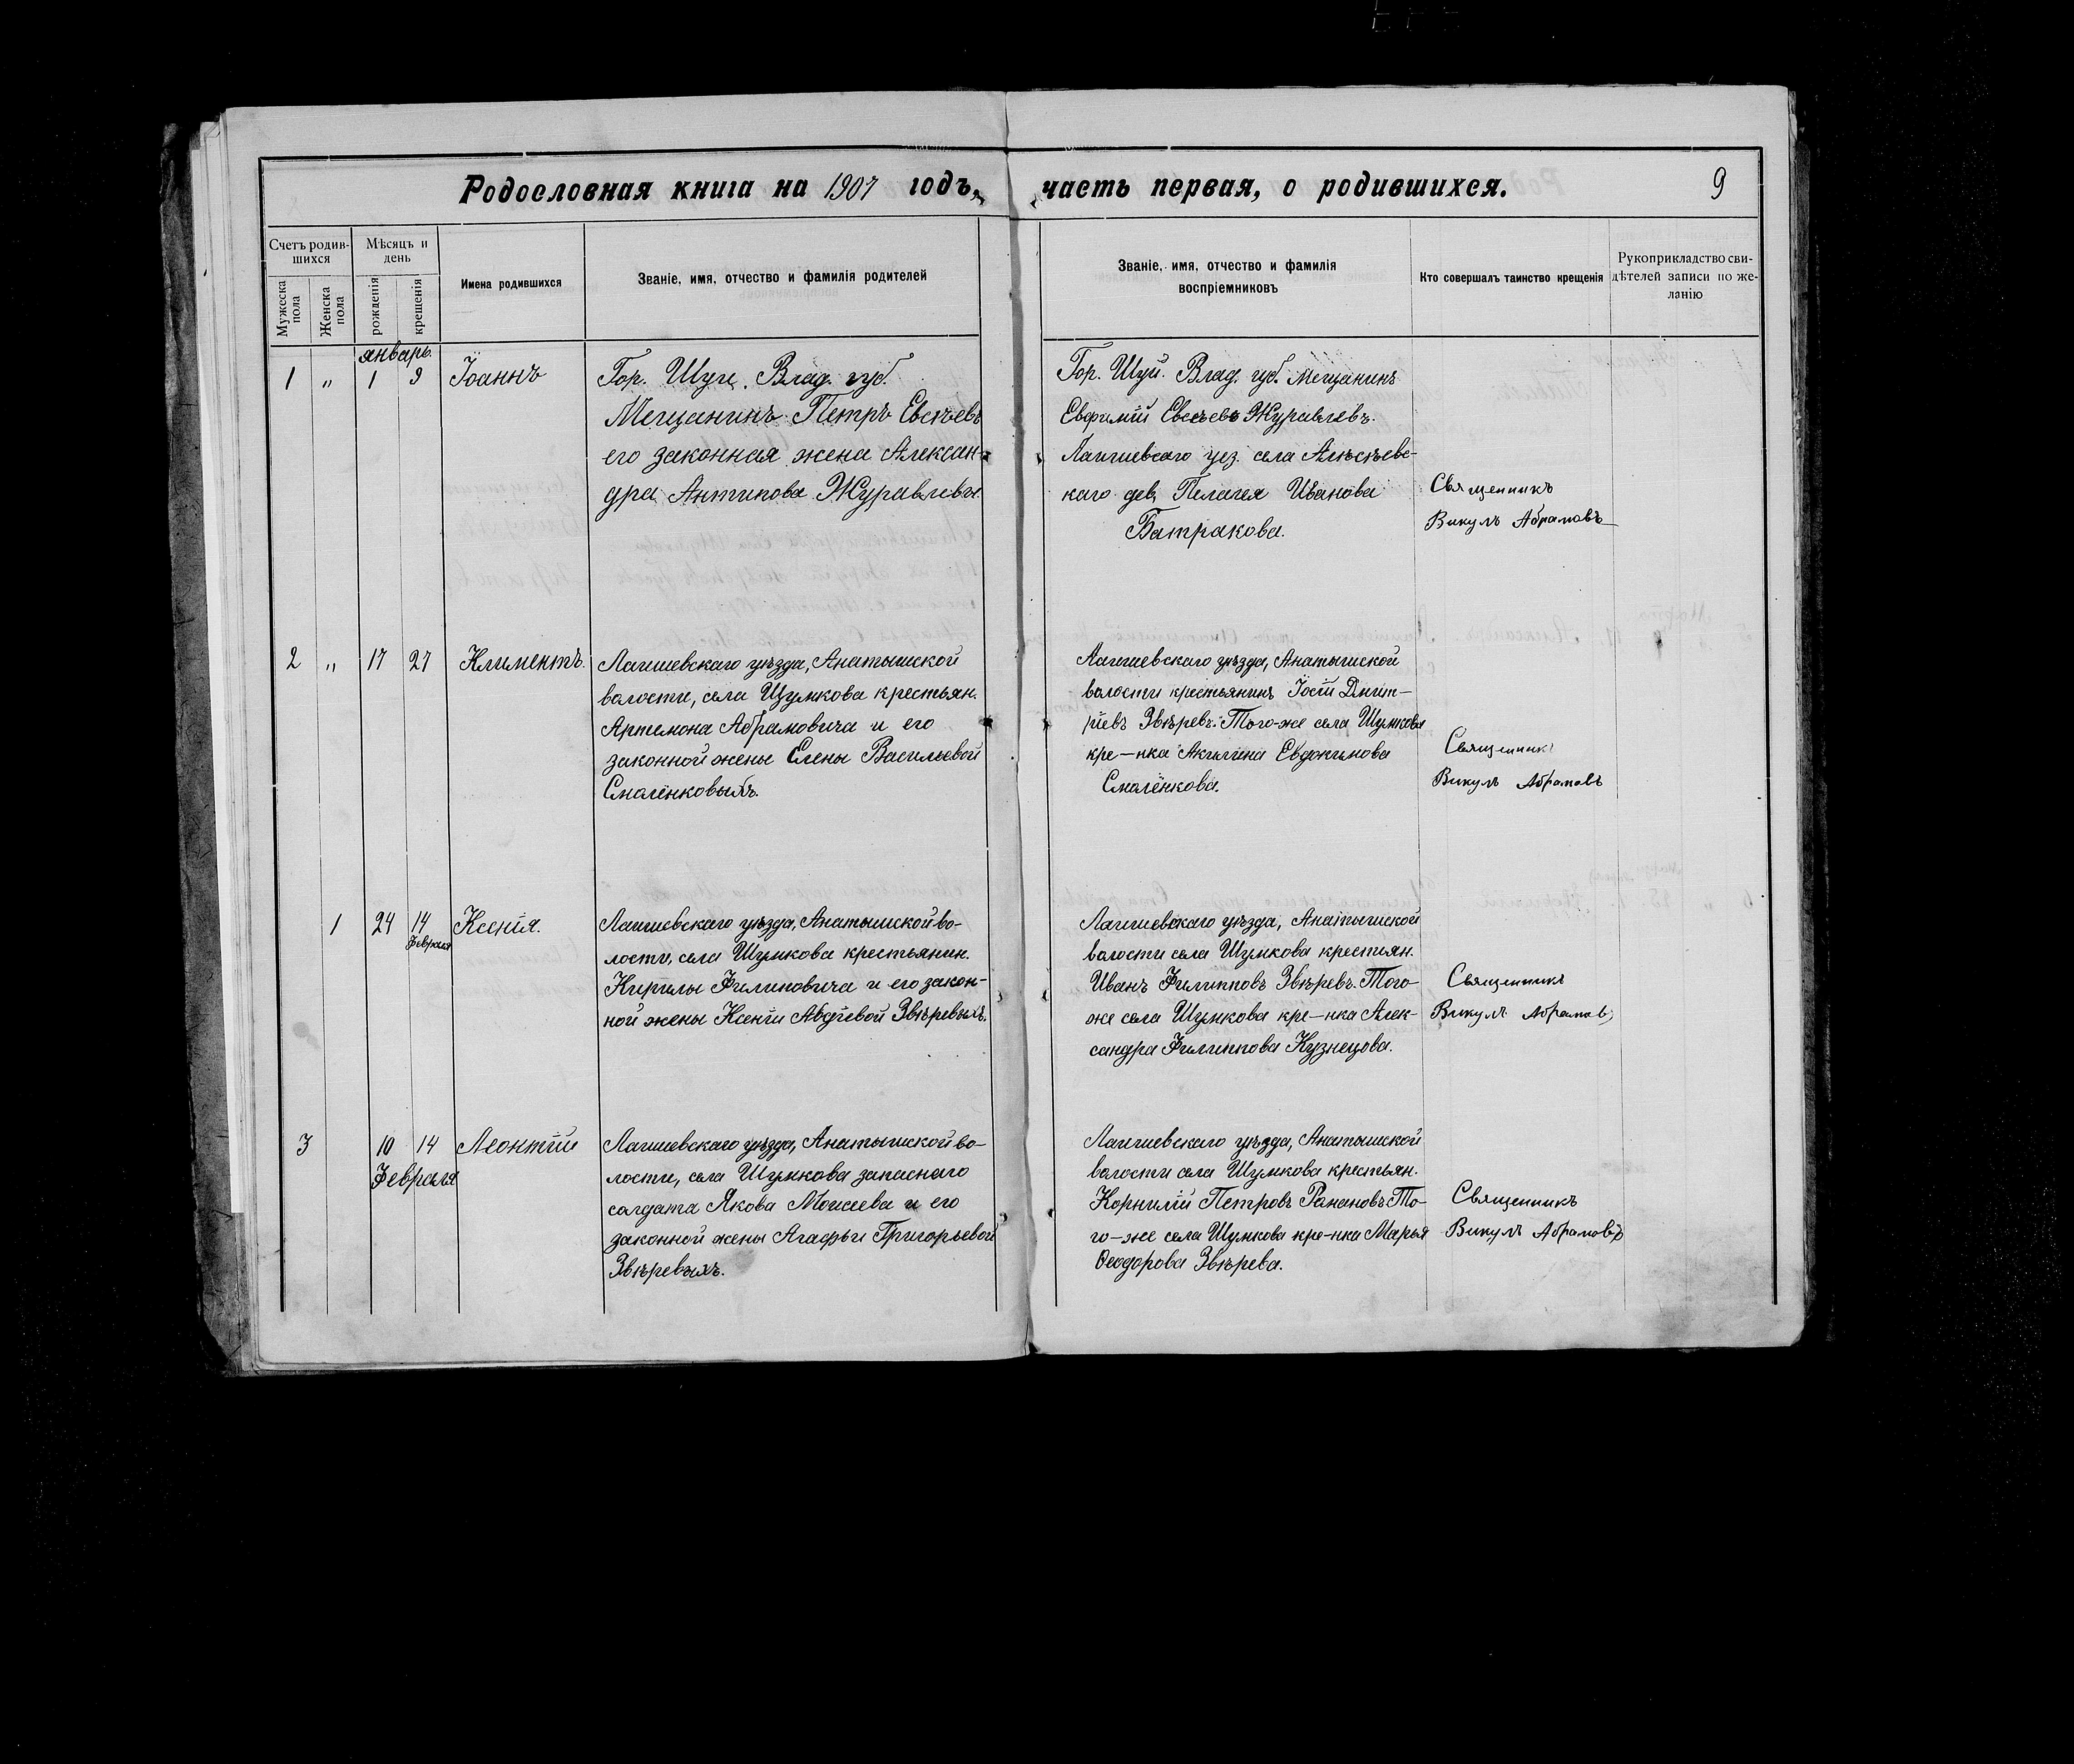 Родословная книга на 1907 годъ, часть первая, о родившихся.
9
Счетъ родившихся
Мѣсяцъ и день
Имена родившихся
Званіе, имя, отчество и фамилія родителей
Званіе, имя, отчество и фамилія воспріемниковъ
Кто совершалъ таинство крещенія
Рукоприкладство свидѣтелей записи по желанію
Мужеска пола
Женска пола
рожденія
крещенія
январь
1 " 1 9 Іоаннъ
Гор. Шуи. Влад. губ.
Мещанинъ Петръ Евсѣевъ
его законная жена Алексан-
дра Антипова Журавлевы.
Гор. Шуи. Влад. губ. мещанинъ
Евфимій Евсѣевъ Журавлевъ.
Лаишевскаго уез. села Алексѣевс-
каго дев. Пелагея Иванова
Батракова.
Священникъ
Викулъ Абрамовъ
2 " 17 27 Климентъ.
Лаишевскаго уѣзда, Анатышской
волости, села Шумкова крестьян.
Артемона Абрамовича и его
законной жены Елены Васильевой
Смолёнковыхъ.
Лаишевскаго уѣзда, Анатышской
волости крестьянинъ Іосій Дмит-
ріевъ Звѣревъ. Того-же села Шумкова
кре-нка Акилина Евдокимова
Смолёнкова.
Священникъ
Викулъ Абрамовъ
1 24 14 Ксенія.
февраля
Лаишевскаго уѣзда, Анатышской во-
лости, села Шумкова крестьянин.
Кирилы Филиповича и его закон-
ной жены Ксеніи Авдіевой Звѣревыхъ.
Лаишевскаго уѣзда, Анатышской
волости села Шумкова крестьян.
Иванъ Филипповъ Звѣревъ. Того-
же села Шумкова кре-нка Алек-
сандра Филиппова Кузнецова.
Священникъ
Викулъ Абрамовъ
3 10 14 Леонтій
Февраля
Лаишевскаго уѣзда, Анатышской во-
лости, села Шумкова запаснаго
солдата Якова Моисеева и его
законной жены Агафьи Григорьевой
Звѣревыхъ.
Лаишевскаго уѣзда, Анатышской
волости села Шумкова крестьян.
Корнилій Петровъ Рамановъ То-
го-же села Шумкова кре-нка Марья
Ѳеодорова Звѣрева.
Священникъ
Викулъ Абрамовъ